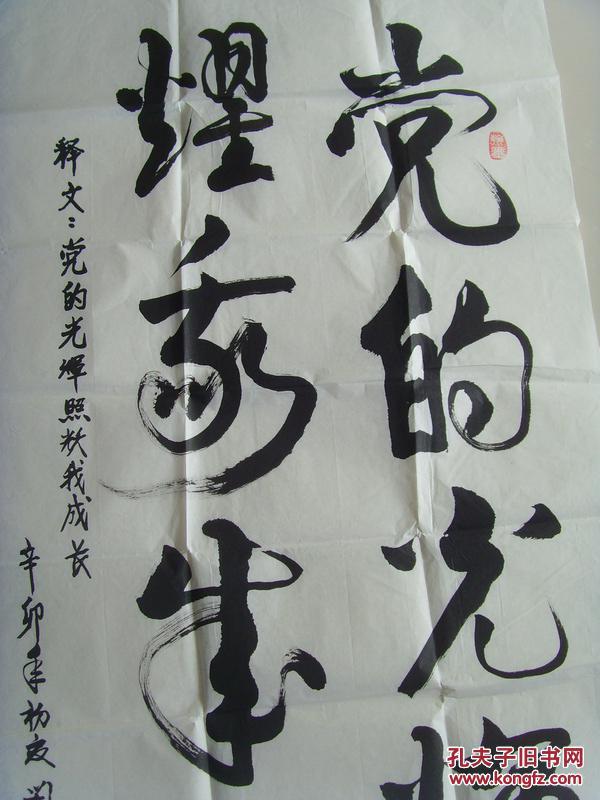 党的光輝
耀我成
释文：党的光輝照耀我成长
辛卯年杨友
孔夫子旧书网
www.kongfz.com